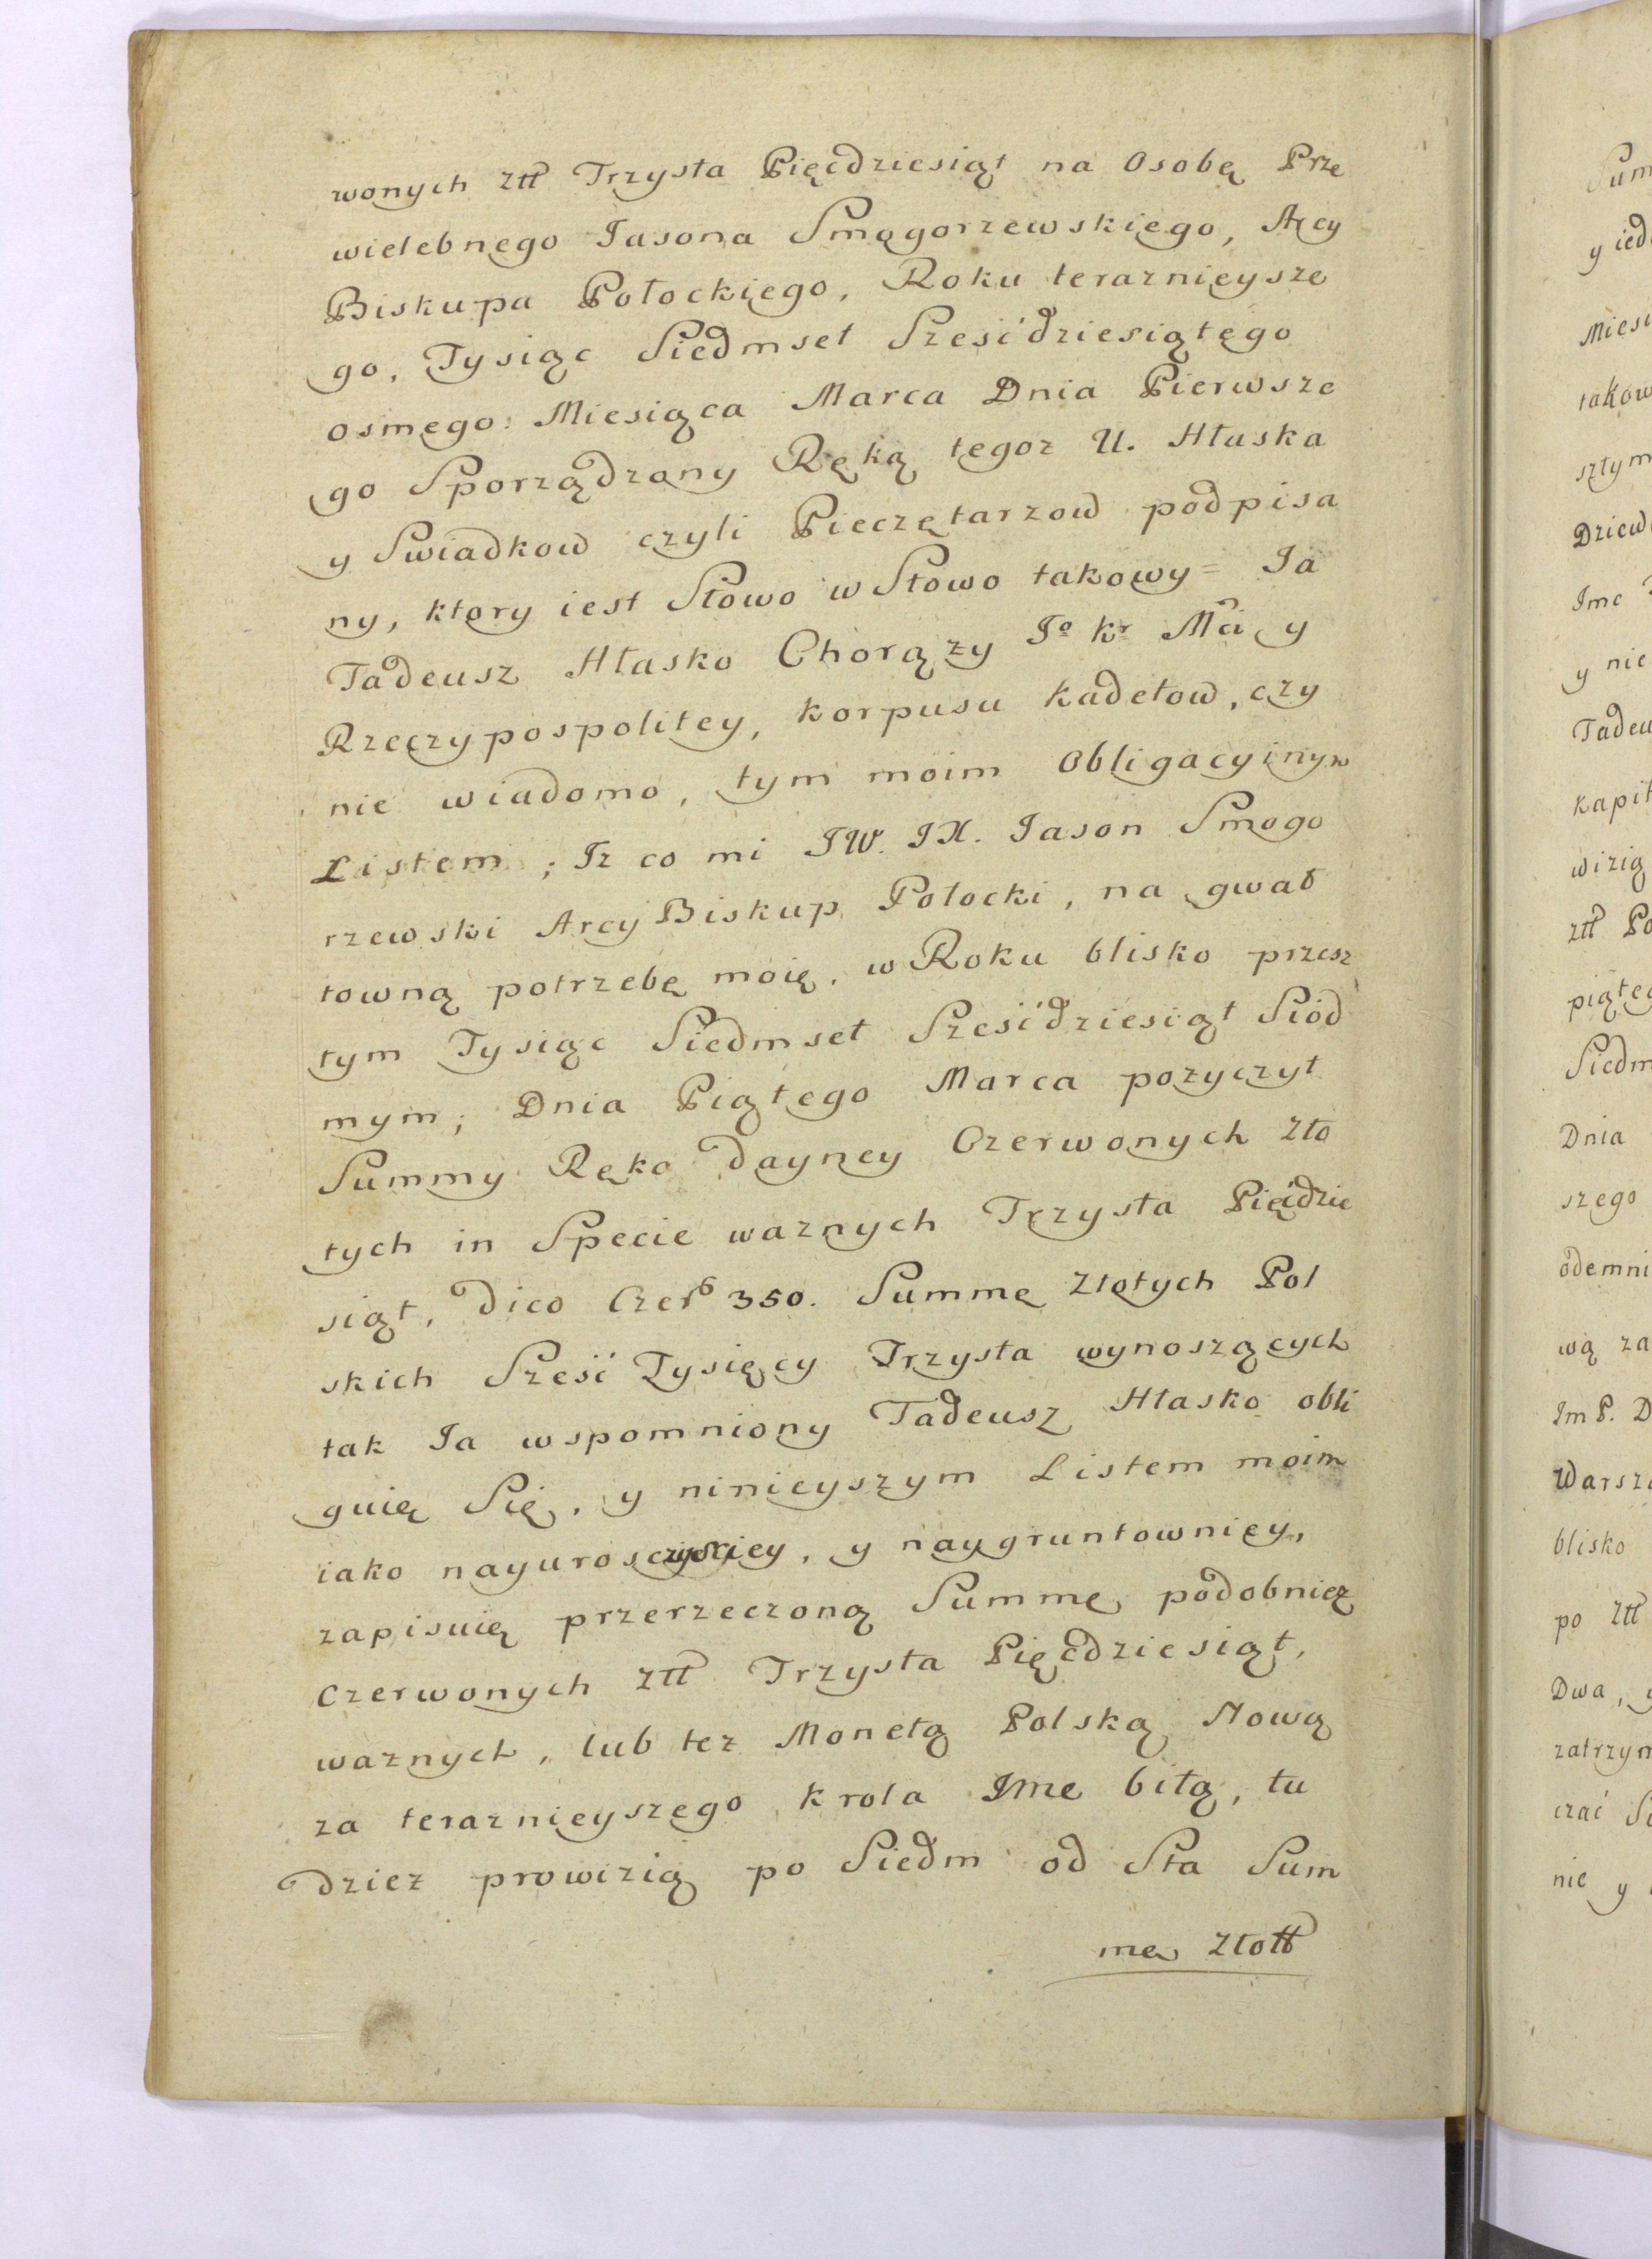 wonych ztt Trzysta Pięćdziesiąt na Osobę Prze
wielebnego Jasona Smogorzewskiego, Arcy
Biskupa Połockiego, Roku teraznieysze
go, Tysiąc Siedmset Sześćdziesiątego
osmego: Miesiąca Marca Dnia Pierwsze
go Sporządzony Ręką tegoz U. Hłaska
y Swiadkow czyli Pieczętarzow podpisa
ny, ktory iest Słowo w Słowo takowy = Ja
Tadeusz Hłasko Chorązy Jo kr Mci y
Rzeczypospolitey, korpusu kadetow, czy
nie wiadomo, tym moim Obligacyinym
Listem; Iz co mi JW. JX. Jason Smogo
rzewski Arcy Biskup Połocki, na gwał
towną potrzebę moię, w Roku blisko przesz
łym Tysiąc Siedmset Sześćdziesiąt Siód
mym; Dnia Piątego Marca pozyczył
Summy Ręko dayney Czerwonych Zło
tych in Specie waznych Trzysta Pięćdzie
siąt, dico Czer 350. Summę Złotych Pol
skich Sześć Tysięcy Trzysta wynoszących
tak Ja wspomniony Tadeusz Hłasko obli
guię Się, y ninieyszym Listem moim
iako nayuroczysciey, y naygruntowniey,
zapisuię przerzeczoną Summę podobniez
Czerwonych ztt Trzysta Pięćdziesiąt,
waznych, lub tez Monetą Polską Nową
za teraznieyszego krola Jme bitą, tu
dziez prowizią po Siedm od Sta Sum
mę Złott